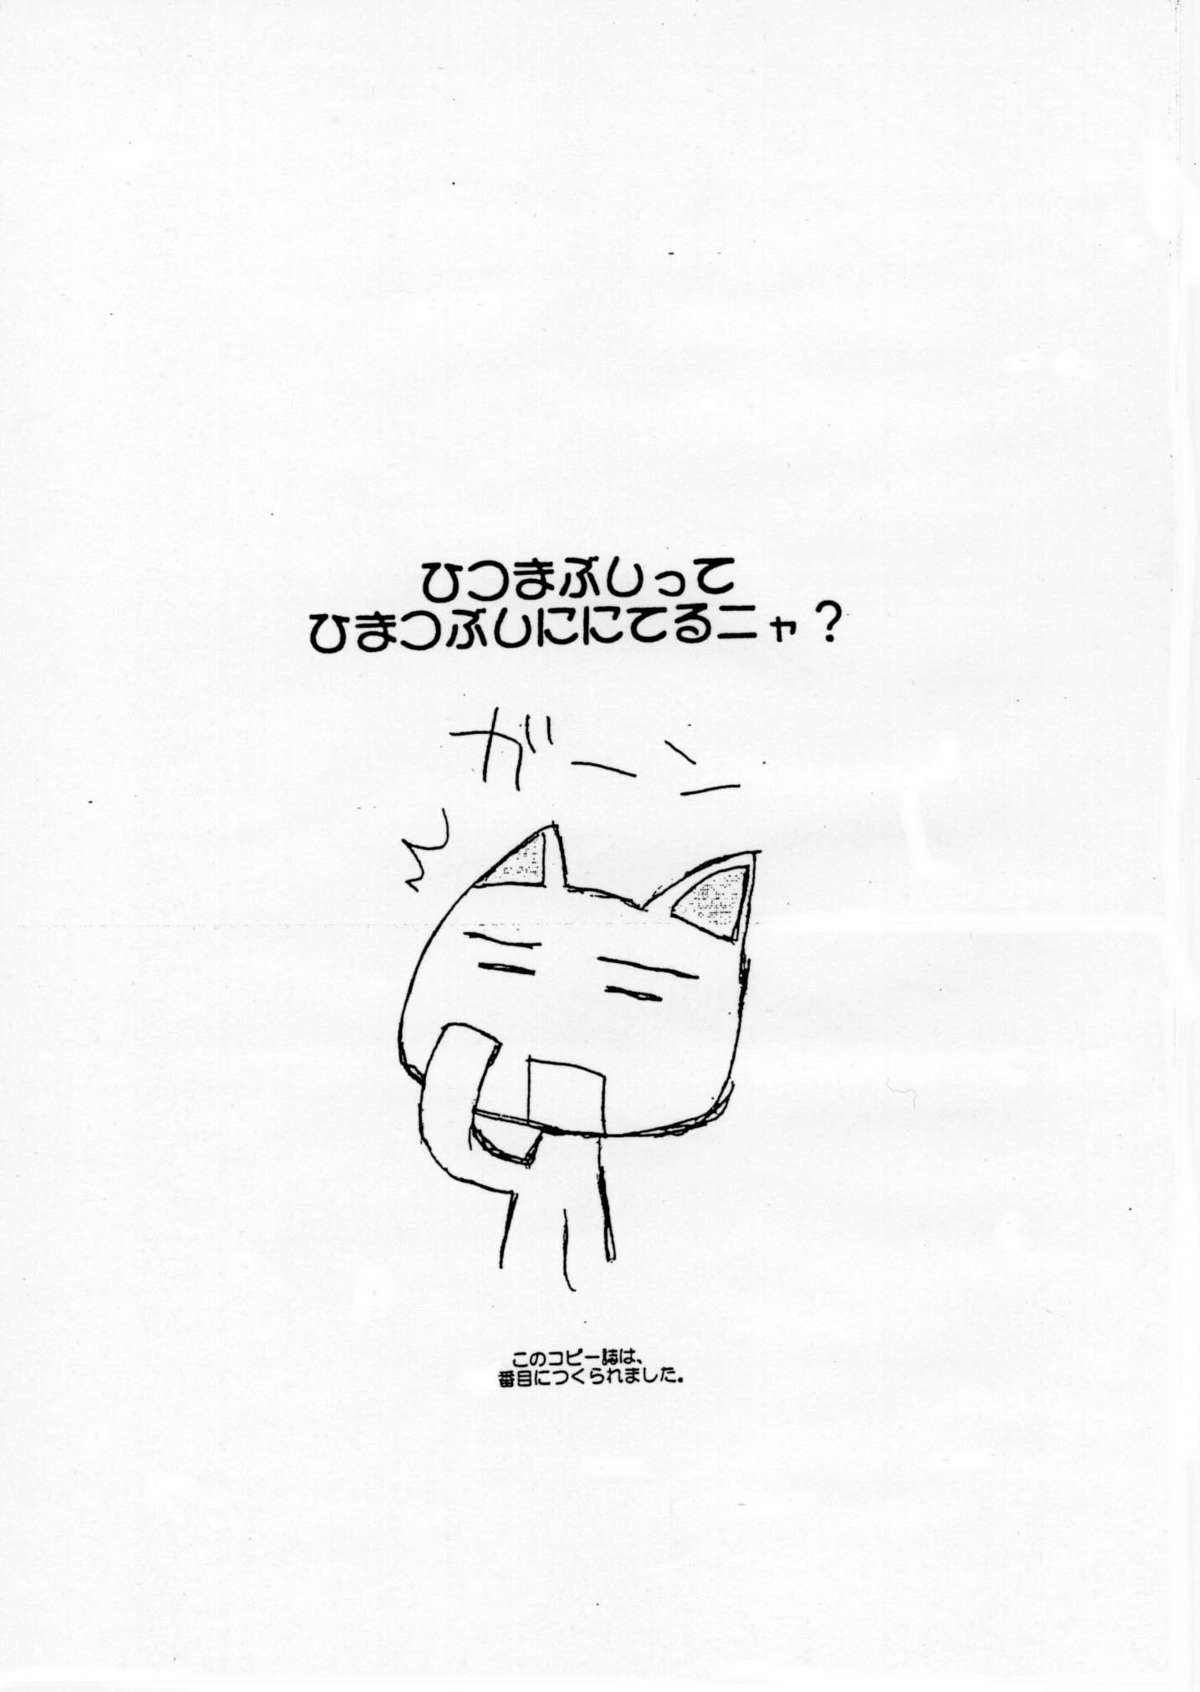 ひつまぶしって
ひまつぶしににてるニャ？
ガーン
このコピー誌は、
番目につくられました。